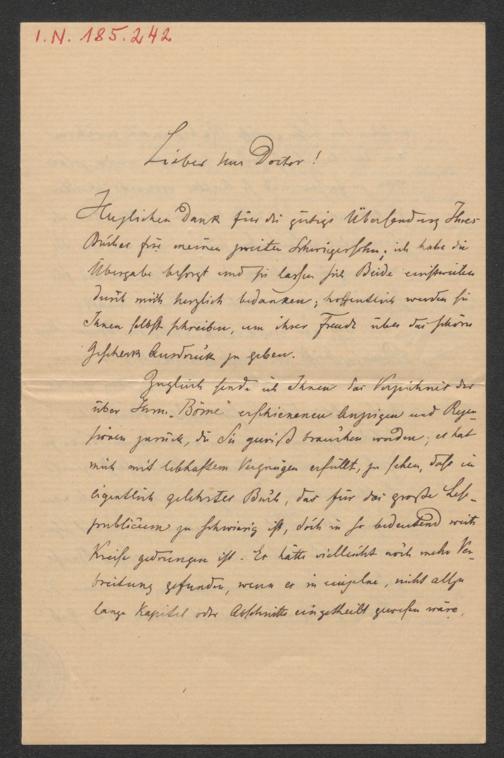 I.N. 185.242
Lieber Herr Doctor!
Herzlichen Dank für die gütige Übersendung Ihres
Buches für meinen zweiten Schwiegersohn; ich habe die
Übergabe besorgt und sie lassen sich Beide einstweilen
durch mich herzlich bedanken; hoffentlich werden sie
Ihnen selbst schreiben, um ihrer Freude über das schöne
Geschenk Ausdruck zu geben.
Zugleich sende ich Ihnen das Verzeichnis der
über Ihren „Börne" erschienenen Anzeigen und Rezen-
sionen zurück, die Sie gewiß brauchen werden; es hat
mich mit lebhaftem Vergnügen erfüllt, zu sehen, dass ein
eigentlich gelehrtes Buch, das für das große Lese-
publicum zu schwierig ist, doch in so bedeutend weite
Kreise gedrungen ist. Er hätte vielleicht noch mehr Ver-
breitung gefunden, wenn er in einzelne, nicht allzu
lange Kapitel oder Abschnitte eingetheilt gewesen wäre,